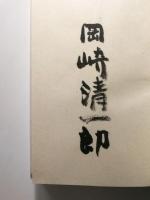 岡崎清一郎